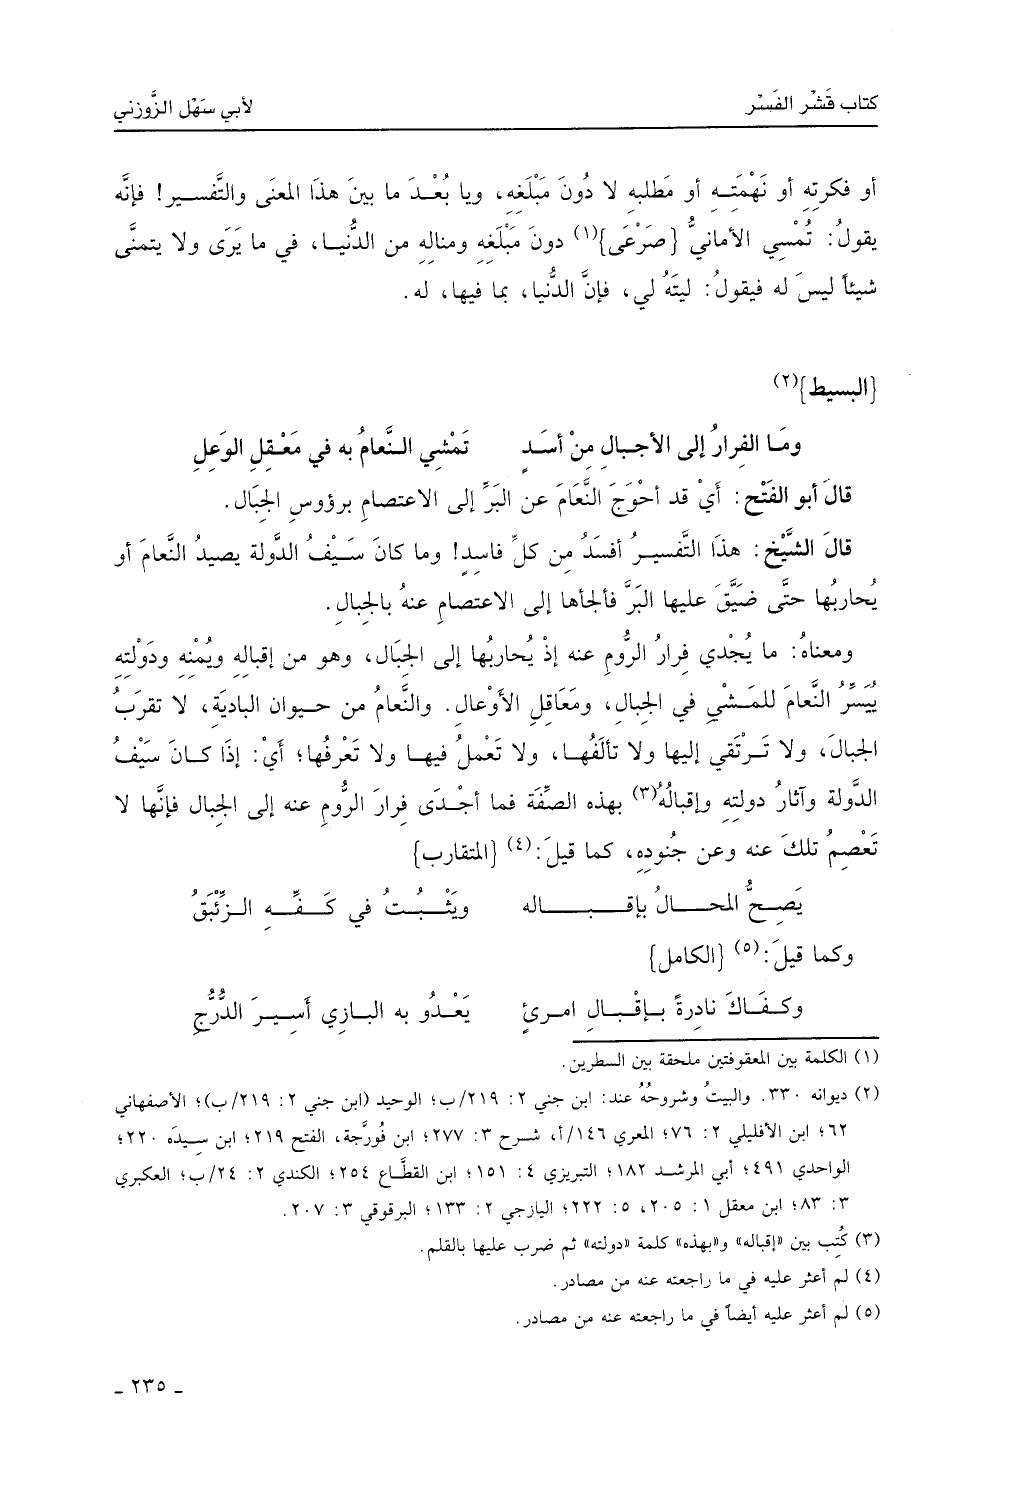 كتاب قَشْر الفَسْر
لأبي سَهْل الزَّوزني
أو فكرتِه أو نَهْمَتِـه أو مَطلبِه لا دُونَ مَبْلَغِه، ويا بُعْـدَ ما بينَ هذَا المعنَى والتَّفسـير! فإنَّه
يقولُ: تُمْسِي الأمانيُّ {صَرْعَى}(١) دونَ مَبْلَغِه ومنالِه من الدُّنيـا، في ما يَرَى ولا يتمنَّى
شيئاً ليسَ له فيقولُ: ليتَهُ لي، فإنَّ الدُّنيا، بما فيها، له.
{البسيط}(٢)
ومَـا الفِرارُ إلى الأجبـالِ مِنْ أسَـدٍ تَمْشِي النَّعامُ به في مَعْـقِلِ الوَعَلِ
قالَ أبو الفَتْح: أيْ قد أحْوَجَ النَّعَامَ عن البَرِّ إلى الاعتصامِ برؤوسِ الجبَال.
قالَ الشَّيْخ: هذَا التَّفسيـرُ أفسَدُ من كلِّ فاسِدٍ! وما كانَ سَـيْفُ الدَّولة يصيدُ النَّعامَ أو
يُحاربُها حتَّى ضيَّقَ عليها البَرَّ فألجأها إلى الاعتصامِ عنهُ بالجبالِ.
ومعناهُ: ما يُجْدي فِرارُ الرُّومِ عنه إذْ يُحاربُها إلى الجبَال، وهو من إقبالِه ويُمْنِه ودَوْلتِه
يُيَسِّرُ النَّعامَ للمَـشْيِ في الجبال، ومَعَاقِلِ الأوْعالِ. والنَّعامُ من حـيوان الباديَة، لا تقرَبُ
الجبالَ، ولا تَـرْتَقي إليها ولا تألَفُهـا، ولا تَعْملُ فيهـا ولا تَعْرفُها؛ أيْ: إذَا كـانَ سَيْفُ
الدَّولة وآثارُ دولتِه وإقبالُهُ(٣) بهذه الصِّفَة فما أجْـدَى فِرارَ الرُّومِ عنه إلى الجبال فإنَّها لا
تَعْصِمُ تلكَ عنه وعن جُنُودِه، كما قيلَ:(٤) {المتقارب}
يَصِـحُّ المحـالُ بإقـبـالـه ويَثْـبُـتُ في كَـفِّـه الـزِّئْبَقُ
وكما قيلَ:(٥) {الكامل}
وكـفَـاكَ نادِرةً بـإقْبـالِ امـرئٍ يَعْـدُو به البـازي أَسـيرَ الدُّرَّجِ
(١) الكلمة بين المعقوفتين ملحقة بين السطرين.
(٢) ديوانه ٣٣٠. والبيتُ وشروحُهُ عند: ابن جني ٢: ٢١٩/ب؛ الوحيد (ابن جني ٢: ٢١٩/ب)؛ الأصفهاني
٦٢؛ ابن الأفليلي ٢: ٧٦؛ المعري ١٤٦/أ، شـرح ٣: ٢٧٧؛ ابن فُورَّجة، الفتح ٢١٩؛ ابن سـيدَه ٢٢٠؛
الواحدي ٤٩١؛ أبي المرشـد ١٨٢؛ التبريزي ٤: ١٥١؛ ابن القطَّاع ٢٥٤؛ الكندي ٢: ٢٤/ب؛ العكبري
٣: ٨٣؛ ابن معقل ١: ٢٠٥، ٥: ٢٢٢؛ اليازجي ٢: ١٣٣؛ البرقوقي ٣: ٢٠٧.
(٣) كُتِب بين «إقباله» و«بهذه» كلمة «دولته» ثم ضرب عليها بالقلم.
(٤) لم أعثر عليه في ما راجعته عنه من مصادر.
(٥) لم أعثر عليه أيضاً في ما راجعته عنه من مصادر.
ـ ٢٣٥ ـ